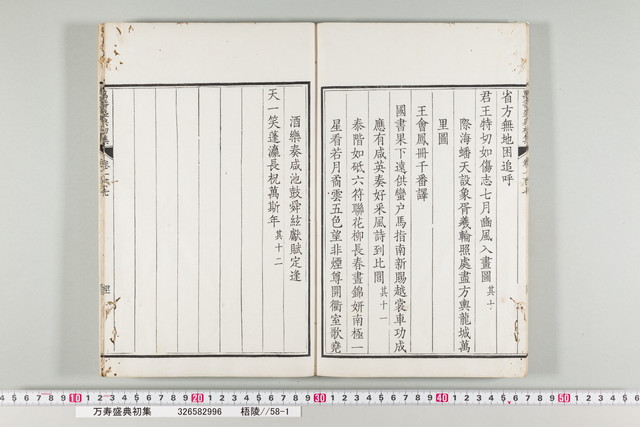 省方無地困追呼
君王特切如傷志七月豳風入畫圖其十
際海蟠天設象胥羲輪照處盡方輿龍城萬
里圖
王會鳳冊千番譯
國書果下遠供蠻户馬指南新賜越裳車功成
應有咸英奏好采風詩到比閭其十一
泰階如砥六符聯花柳長春晝錦妍南極一
星看若月喬雲五色望非煙尊開衢室歌堯
酒樂奏咸池鼓舜絃獻賦定逢
天一笑蓬瀛長祝萬斯年其十二
万寿盛典初集 326582996 梧陵//58-1
10 20 30 40 50